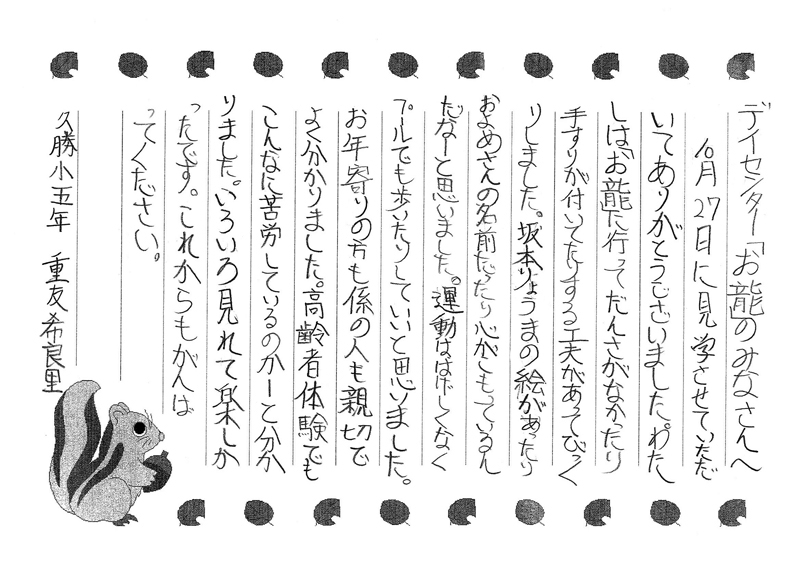 デイセンター「お龍」のみなさんへ
10月27日に見学させていただ
いてありがとうございました。わた
しは「お龍」に行ってだんさがなかったり
手すりが付いてたりする工夫があってびっく
りしました。坂本りょうまの絵があったり
およめさんの名前だったり心がこもっているん
だなーと思いました。運動ははげしくなく
プールでも歩いたりしていいと思いました。
お年寄りの方も係の人も親切で
よく分かりました。高齢者体験でも
こんなに苦労しているのかーと分か
りました。いろいろ見れて楽しか
ったです。これからもがんば
ってください。
久勝小五年 重友希良里